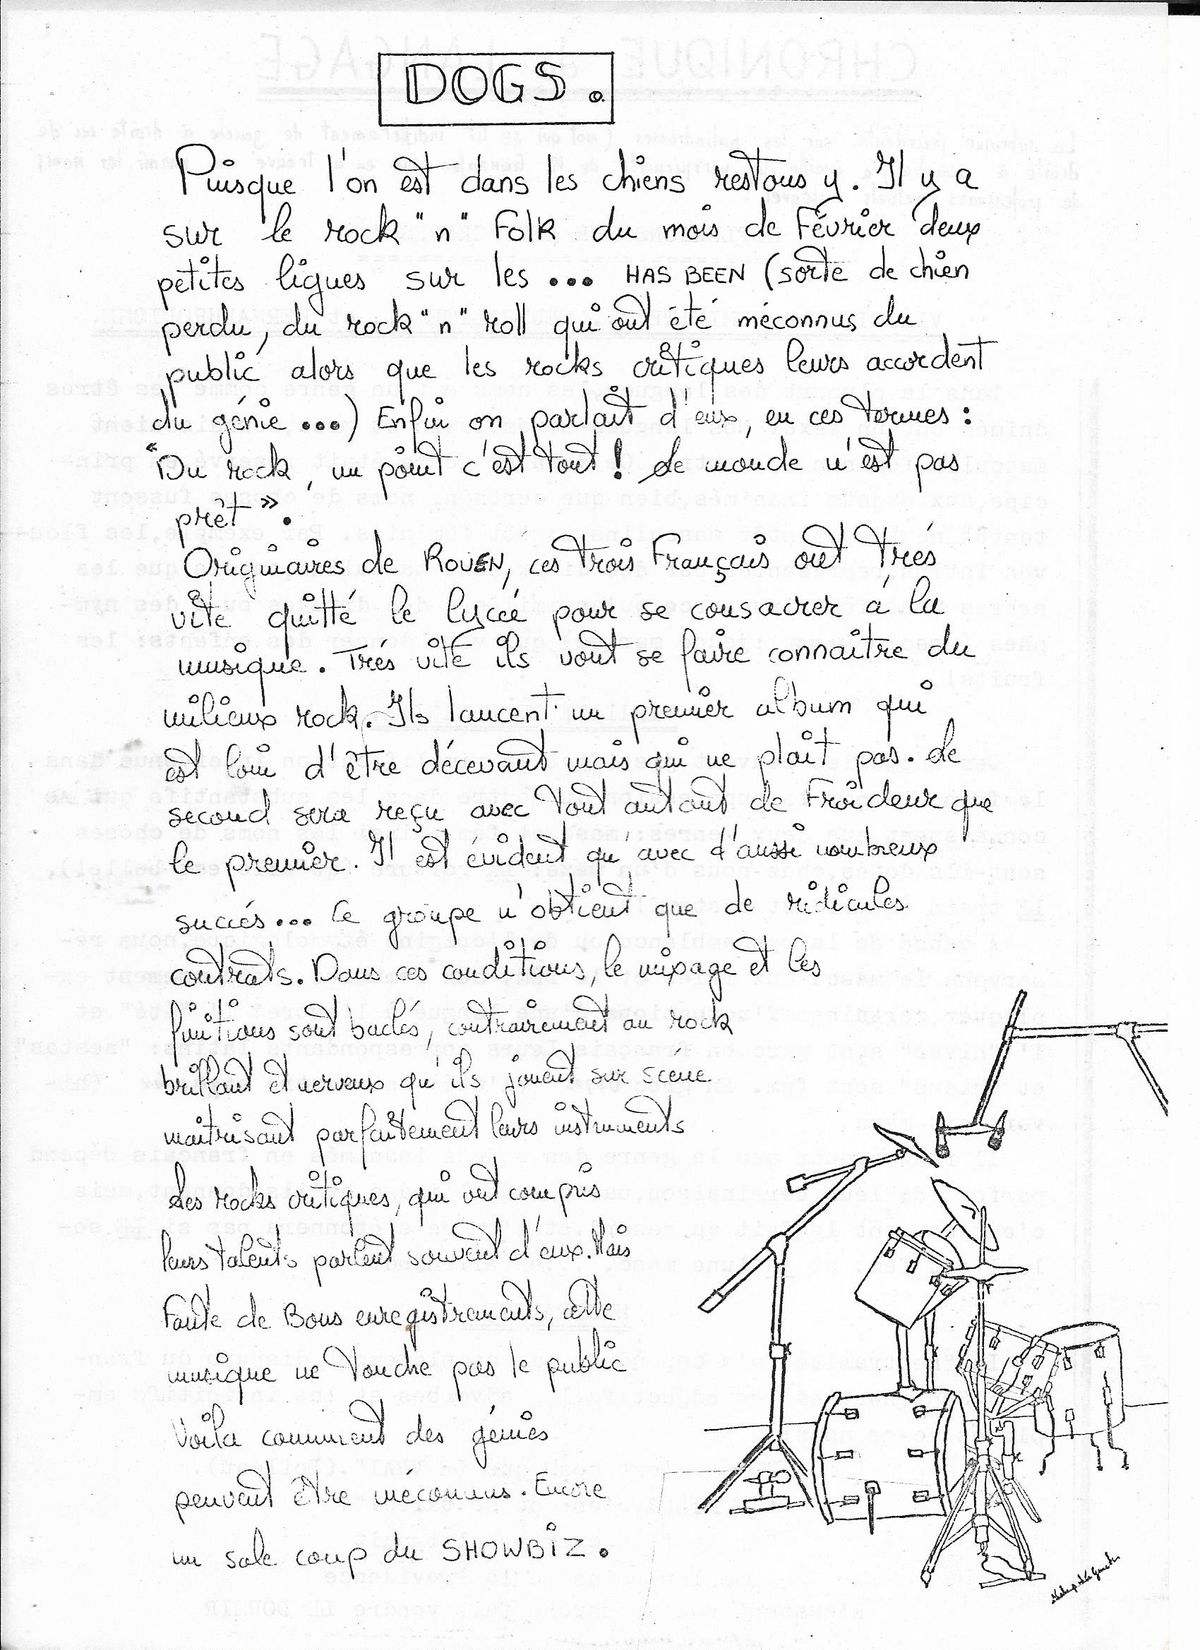 DOGS.
Puisque l'on est dans les chiens restons y. Il y a
sur le rock "n" Folk du mois de Février deux
petites lignes sur les ... HAS BEEN (sorte de chien
perdu, du rock "n" roll qui ont été méconnus du
public alors que les rocks critiques leurs accordent
du génie ...) Enfin on parlait d'eux, en ces termes :
"Du rock, un point c'est tout ! Le monde n'est pas
prêt ».
Originaires de ROUEN, ces trois Français ont trés
vite quitté le lycée pour se consacrer á la
musique. Trés vite ils vont se faire connaitre du
milieux rock. Ils lancent un premier album qui
est loin d'être décevant mais qui ne plait pas. Le
second sera reçu avec tout autant de Froideur que
le premier. Il est évident qu'avec d'aussi nombreux
succés ... Le groupe n'obtient que de ridicules
contrats. Dans ces conditions, le mixage et les
finitions sont baclés, contrairement au rock
brillant et nerveux qu'ils jouent sur scéne
maitrisant parfaitement leurs instruments
Les rocks critiques, qui ont compris
leurs talents parlent souvent d'eux. Mais
Faute de Bons enregistrements, cette
musique ne touche pas le public
Voila comment des génies
peuvent être méconnus. Encore
un sale coup du SHOWBIZ.